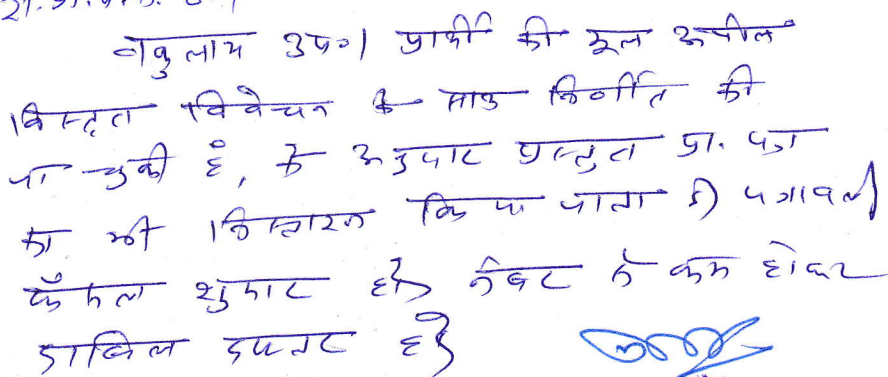 वकुलाय उप०। प्रार्थी की मूल अपील
विस्तृत विवेचन के साथ निर्णीत की
जा चुकी है, के अनुसार प्रस्तुत प्रा. पत्र
का भी निस्तारण किया जाता है। पत्रावली
फैसला शुमार हो नंबर से कम होकर
दाखिल दफ्तर हो